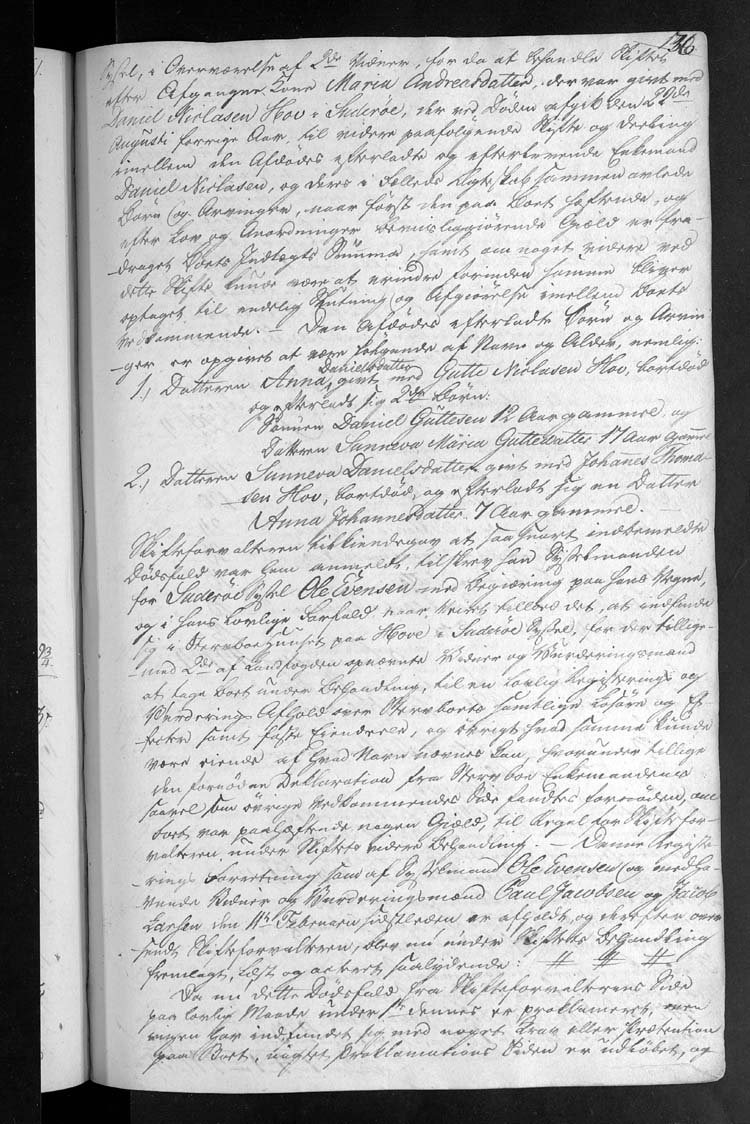 136
Syssel, i Overværelse af 2de Vidner, for da at behandle Skiftet
efter Afgangne Kone Maria Andreasdatter, der var givt med
Daniel Niclasen Hov i Suderøe, der ved Døden afgik den 22de
Augusti forrige Aar, til videre paafølgende Skifte og Deeling
imellem den Afdødes efterladte og efterlevende Enkemand
Daniel Niclasen, og deres i Fælleds Ægteskab sammen avlede
Børn og Arvinger, naar først den paa Boet hæftende, og
efter Lov og Anordninger beviisliggiørende Giæld er fra-
draget Boets Indtægts Summa, samt om noget videre ved
dette Skifte kunde være at erindre forinden samme bliver
optaget til endelig Slutning og Afgiørelse imellem Boets
Vedkommende. – Den Afdødes efterladte Børn og Arvin-
ger er opgivet at være følgende af Navn og Alder, nemlig:
1.) Datteren Anna Danielsdatter, givt med Gutte Niclasen Hov, bortdød
og efterladt sig 2de Børn:
Sønnen Daniel Guttesen 12 Aar gammel, og
Datteren Sunneva Maria Guttesdatter 17 Aar gammel
2.) Datteren Sunneva Danielsdatter givt med Johanes Thoma-
sen Hov, bortdød, og efterladt sig en Datter
Anna Johannesdatter 7 Aar gammel. –
Skifteforvalteren tilkiendegav at saa snart indbemeldte
Dødsfald var ham anmeldt, tilskrev han Sysselmanden
for Suderøe Syssel Ole Evensen med Begiæring paa hans Vegne,
og i hans lovlige Forfald naar Veiret tillod det, at indfinde
sig i Sterboehuuset paa Hove i Suderøe Syssel, for der tillige-
med 2de af Landfogden opnævnte Vidner og Vurderingsmænd
at tage Boet under Behandling, til en lovlig Registerings og
Vurderings Afhold over Sterboets samtlige Løsøre og Ef-
fecter samt faste Eiendeele, og øvrigt hvad samme kunde
være eiende af hvad Navn nævnes kan, hvorunder tillige
den fornødne Declaration fra Sterboe Enkemandens
saavel som øvrige Vedkommendes Side fandtes fornøden, om
Boet var paahæftende nogen Giæld, til Regel for Skiftefor-
valteren under Skiftets videre Behandling. – Denne Registe-
rings Forretning som af Sysselmand Ole Evensen og medha-
vende Vidner og Vurderingsmænd Paul Jacobsen og Jacob
Larsen den 11te Februarii sidstleden er afholdt, og derefter over-
sendt Skifteforvalteren, blev nu under Skiftets Behandling
fremlagt, læst og acteret saalydende: # # #
Da nu dette Dødsfald fra Skifteforvalterens Side
paa lovlig Maade under dennes er proklameret, men
ingen har indfundet sig med noget Krav eller Prætention
paa Boet, uagtet Proklamations Tiden er udløbet, og